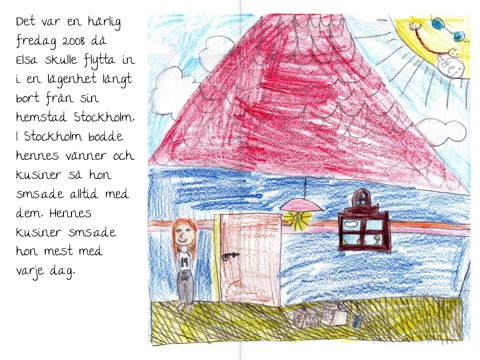 Det var en härlig
fredag 2008 då
Elsa skulle flytta in
i en lägenhet långt
bort från sin
hemstad Stockholm.
I Stockholm bodde
hennes vänner och
kusiner så hon
smsade alltid med
dem. Hennes
kusiner smsade
hon mest med
varje dag.